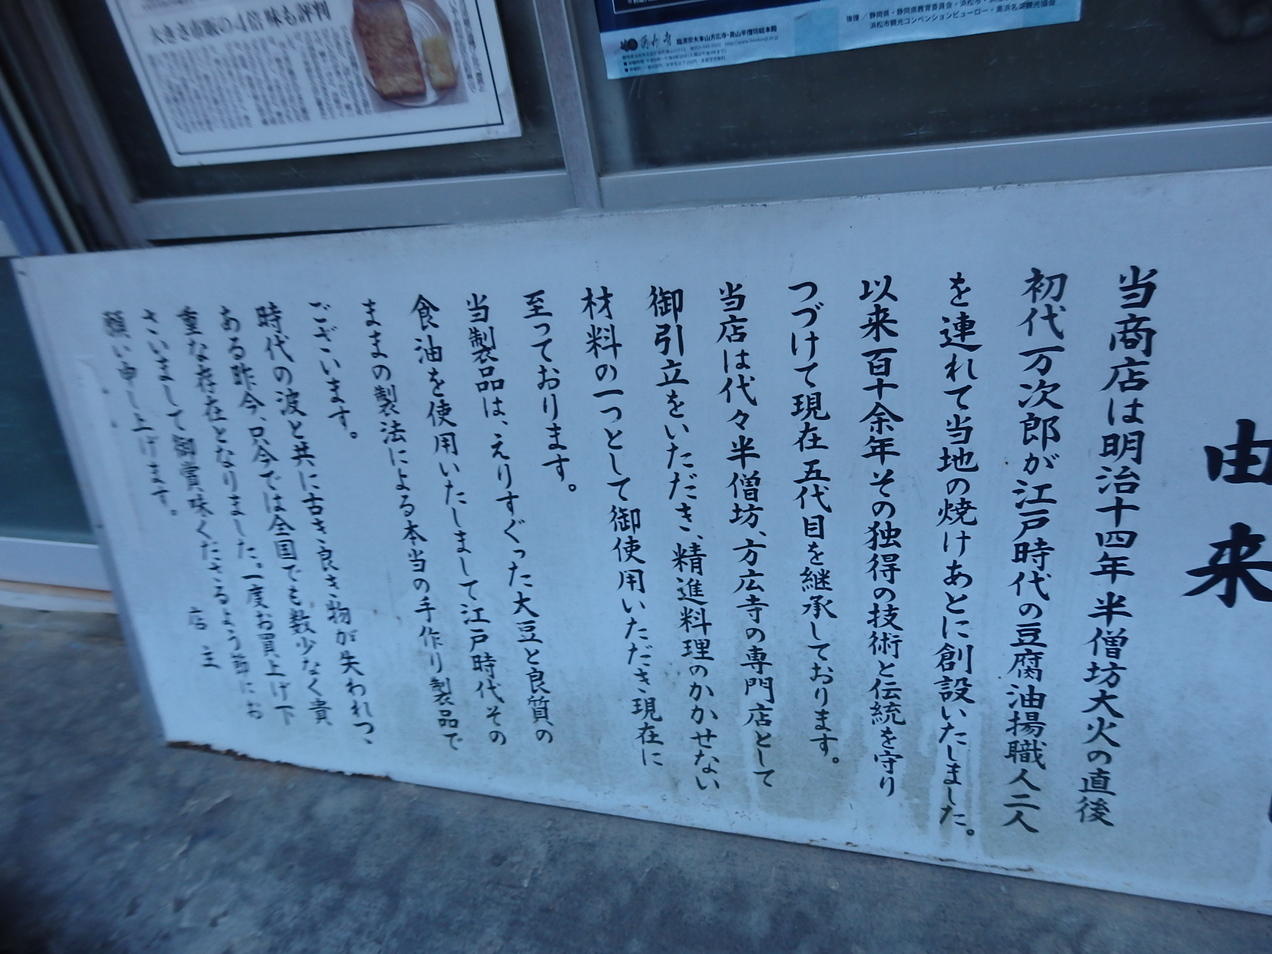 大きさ市販の4倍 味も評判
臨済宗大本山方広寺・奥山半僧坊総本殿
後援/静岡県・静岡県教育委員会・浜松市・
浜松市観光コンベンションビューロー・奥浜名湖観光協会
由来
当商店は明治十四年半僧坊大火の直後
初代万次郎が江戸時代の豆腐油揚職人二人
を連れて当地の焼けあとに創設いたしました。
以来百十余年その独得の技術と伝統を守り
つづけて現在五代目を継承しております。
当店は代々半僧坊、方広寺の専門店として
御引立をいただき、精進料理のかかせない
材料の一つとして御使用いただき現在に
至っております。
当製品は、えりすぐった大豆と良質の
食油を使用いたしまして江戸時代その
ままの製法による本当の手作り製品で
ございます。
時代の波と共に古き良き物が失われつゝ
ある昨今、只今では全国でも数少なく貴
重な存在となりました。一度お買上げ下
さいまして御賞味くださるよう節にお
願い申し上げます。
店主